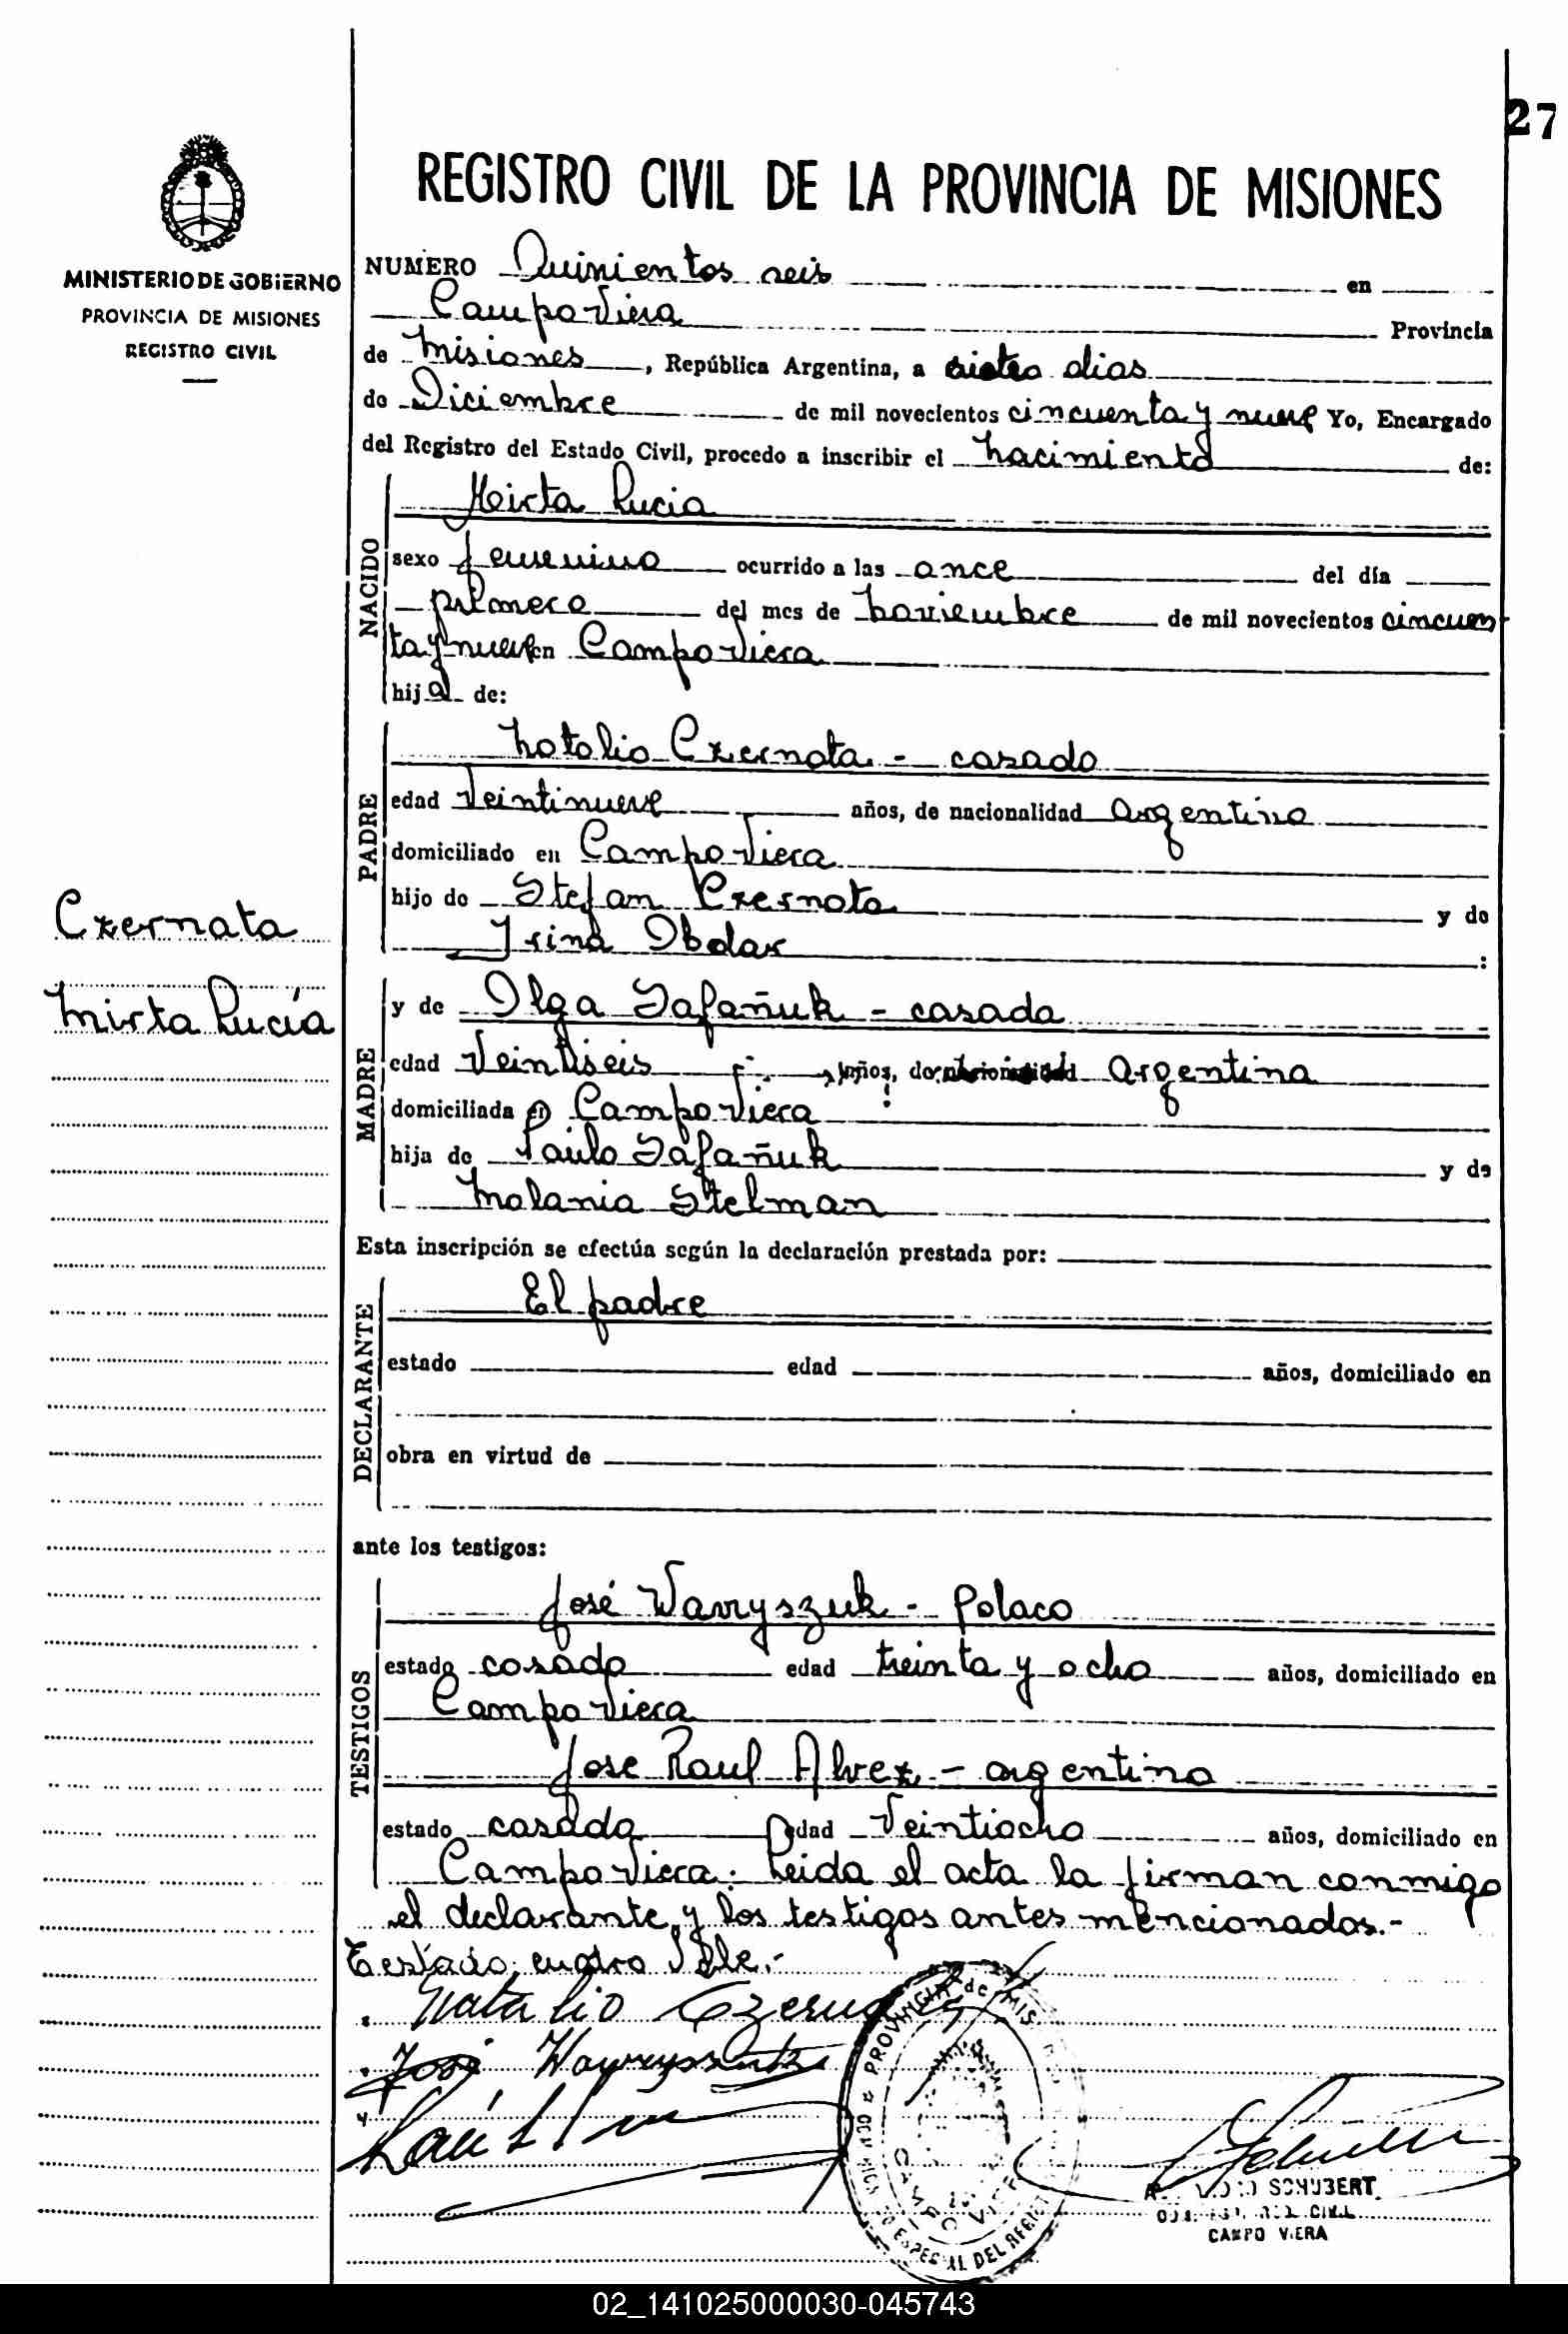 27
REGISTRO CIVIL DE LA PROVINCIA DE MISIONES
MINISTERIO DE GOBIERNO
PROVINCIA DE MISIONES
REGISTRO CIVIL
NUMERO Quinientos seis en
Campo Viera Provincia
de Misiones, República Argentina, a siete dias
de Diciembre de mil novecientos cincuenta y nueve Yo, Encargado
del Registro del Estado Civil, procedo a inscribir el nacimiento de:
NACIDO
Mirta Lucia
sexo femenino ocurrido a las once del día
primero del mes de noviembre de mil novecientos cincuen
ta y nueve en Campo Viera
hija de:
PADRE
Natalio Czernata - casado
edad Veintinueve años, de nacionalidad argentino
domiciliado en Campo Viera
hijo de Stefan Czernata y de
Irina Obolar:
Czernata
Mirta Lucía
MADRE
y de Olga Safañuk - casada
edad Veintiseis años, de nacionalidad Argentina
domiciliada en Campo Viera
hija de Paulo Safañuk y de
Malania Stelman
Esta inscripción se efectúa según la declaración prestada por:
DECLARANTE
El padre
estado edad años, domiciliado en
obra en virtud de
ante los testigos:
TESTIGOS
José Wavryszuk - Polaco
estado casado edad treinta y ocho años, domiciliado en
Campo Viera
Jose Raul Alvez - argentino
estado casado edad Veintiocho años, domiciliado en
Campo Viera. Leida el acta la firman conmigo
el declarante y los testigos antes mencionados.-
Testado: cuatro Vale.-
Natalio Czernata
José
Raúl
PROVINCIA de MIS
CAMPO VIERA
ESPECIAL DEL REGIST
SCHUBERT
REG. CIVIL
CAMPO VIERA
02_141025000030-045743